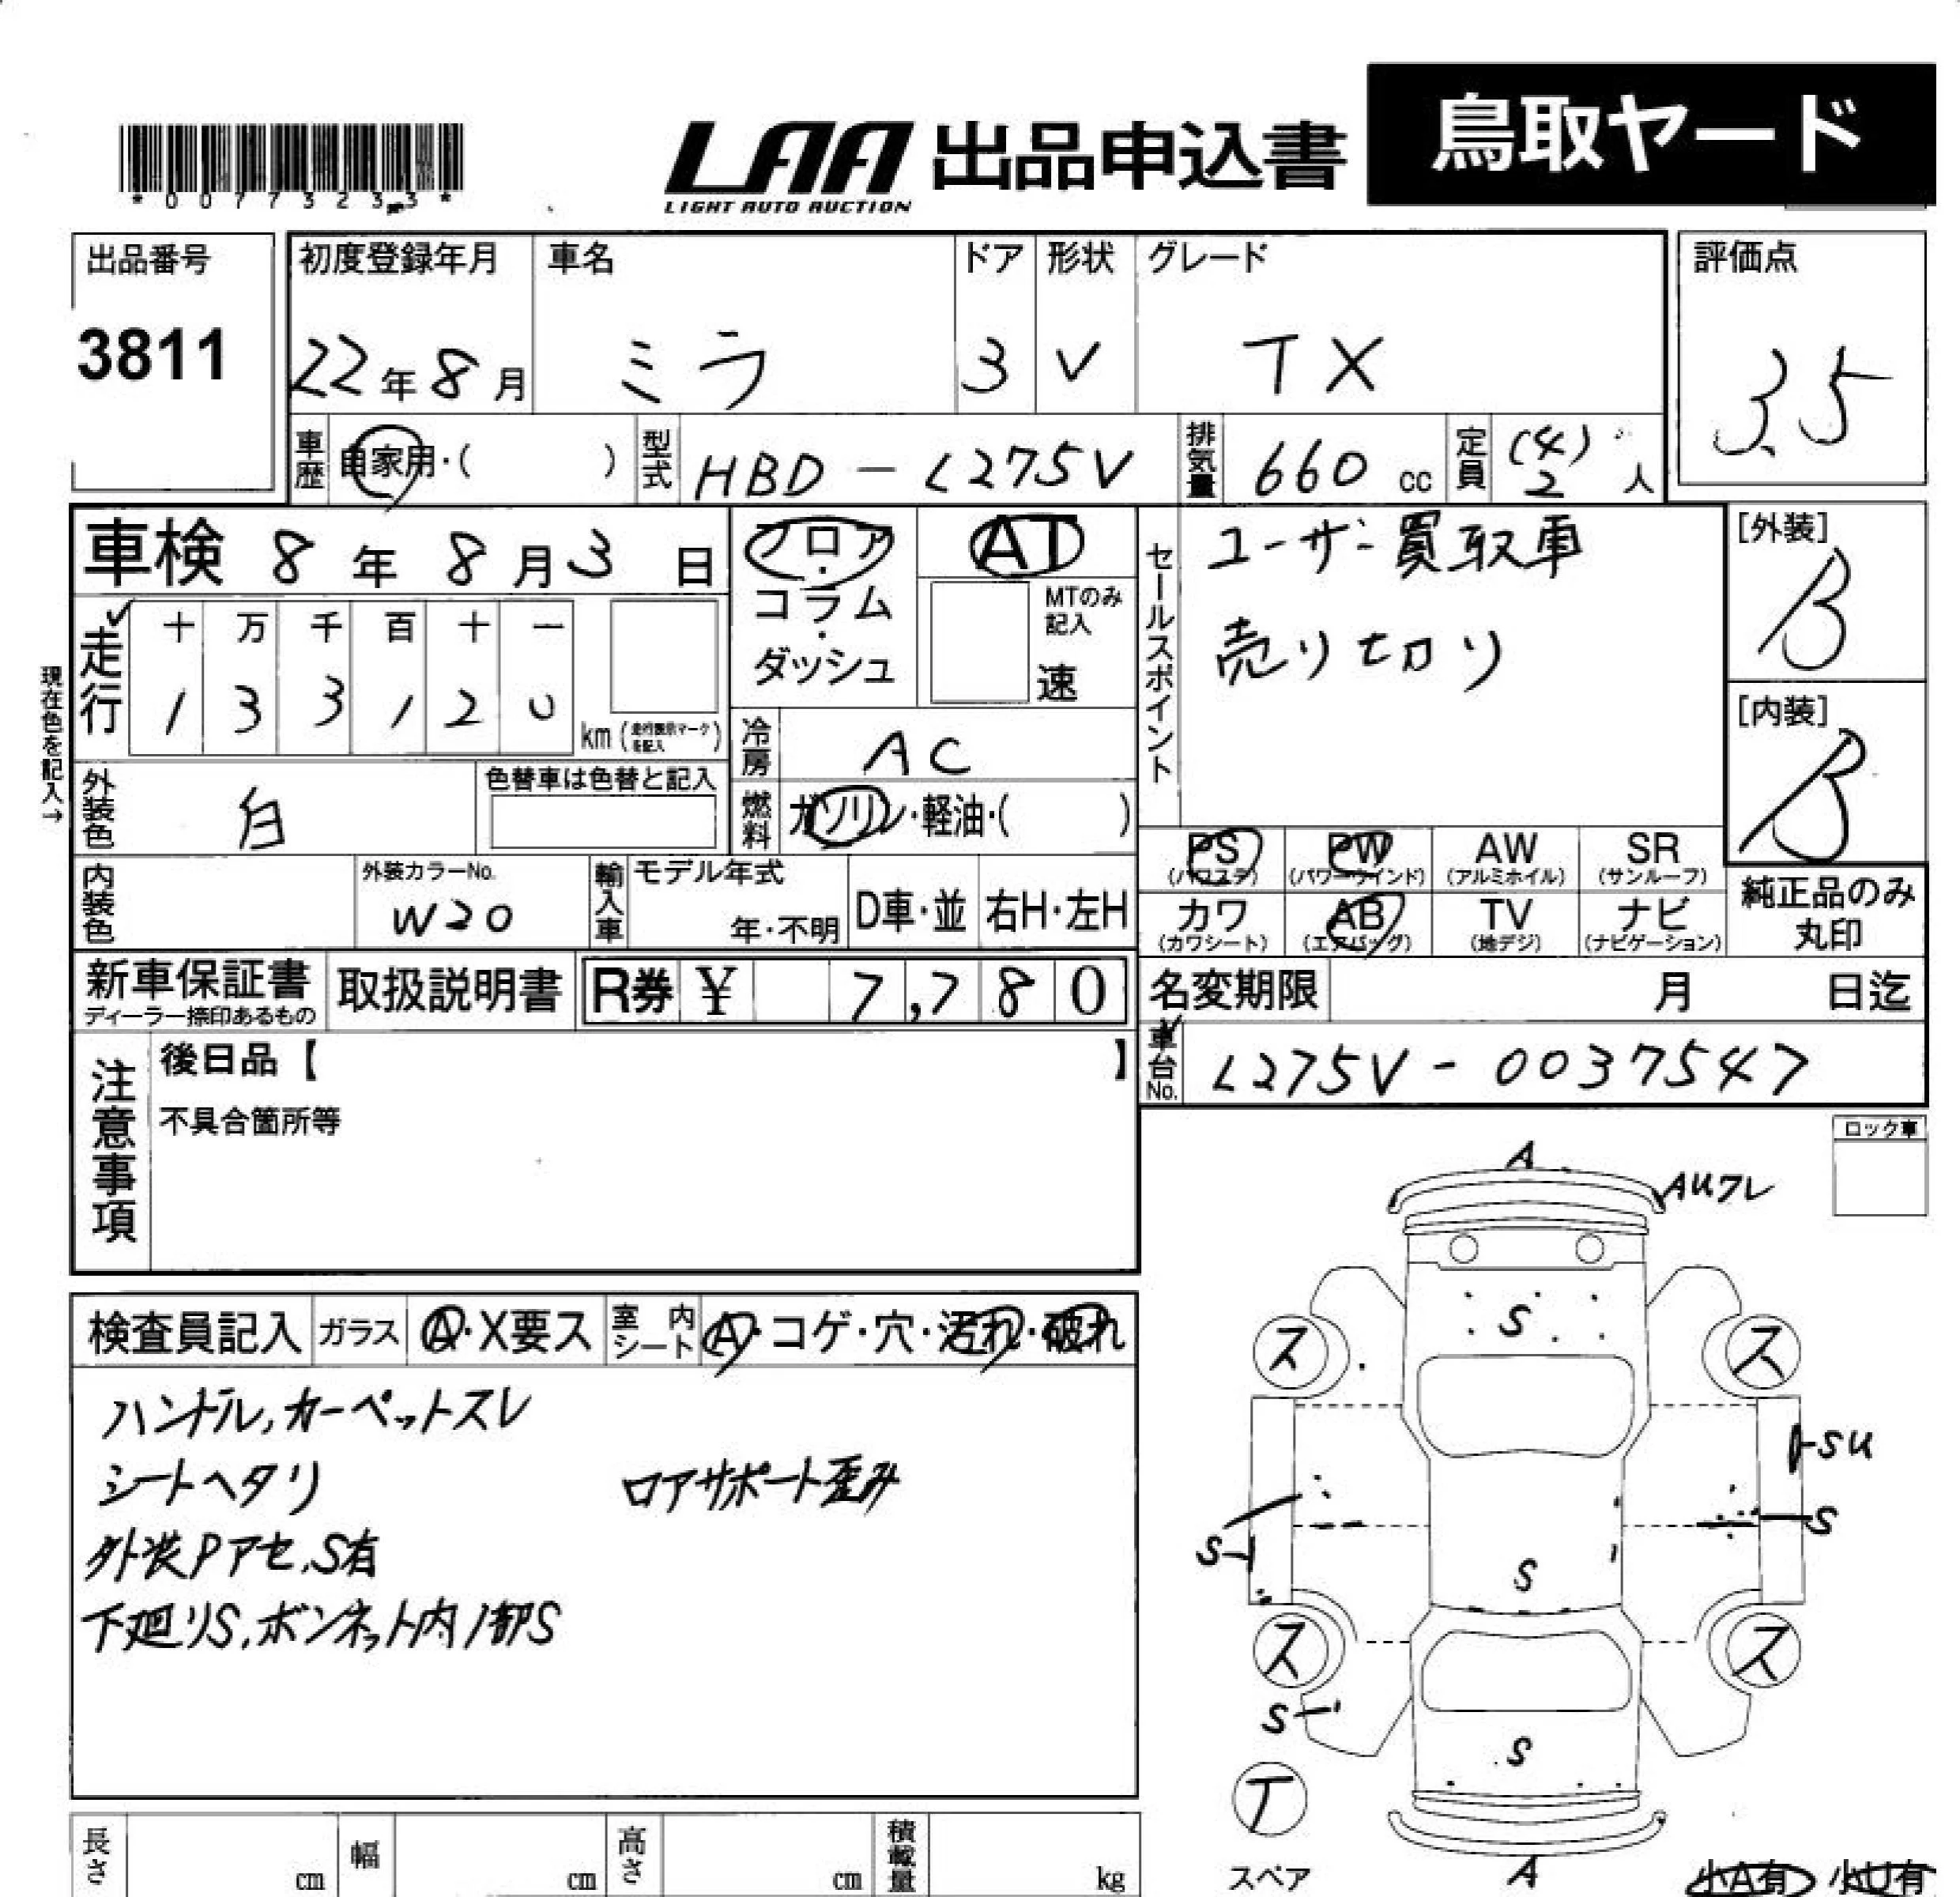 *00773233*
LAA
LIGHT AUTO AUCTION
出品申込書
鳥取ヤード
出品番号
3811
初度登録年月
22年8月
車名
ミラ
ドア
3
形状
V
グレード
TX
評価点
3.5
車歴
自家用・( )
型式
HBD-L275V
排気量
660 cc
定員
(4)
2 人
車検 8年8月3日
フロア
・
コラム
・
ダッシュ
AT
MTのみ
記入
速
セールスポイント
ユーザー買取車
売り切り
[外装]
B
[内装]
B
現在色を記入→
走行
十 万 千 百 十 一
1 3 3 1 2 0
km (走行表示マークを記入)
冷房
AC
外装色
白
色替車は色替と記入
燃料
ガソリン・軽油・( )
内装色
外装カラーNo.
W20
輸入車
モデル年式
年・不明
D車・並
右H・左H
PS
(パワステ)
PW
(パワーウインド)
AW
(アルミホイル)
SR
(サンルーフ)
カワ
(カワシート)
AB
(エアバッグ)
TV
(地デジ)
ナビ
(ナビゲーション)
純正品のみ
丸印
新車保証書
ディーラー捺印あるもの
取扱説明書
R券 ¥ 7,780
名変期限 月 日迄
車台No.
L275V-0037547
注意事項
後日品【 】
不具合箇所等
ロック車
検査員記入
ガラス
A・X要ス
室内
シート
A・コゲ・穴・汚れ・破れ
ハンドル,カーペットスレ
シートヘタリ
ロアサポート歪み
外装Pアセ,S有
下廻りS,ボンネット内ノ部S
A
AUワレ
S
ス
ス
SU
S
S
S
ス
ス
S
S
T
スペア
A
小A有
小U有
長さ
cm
幅
cm
高さ
cm
積載量
kg